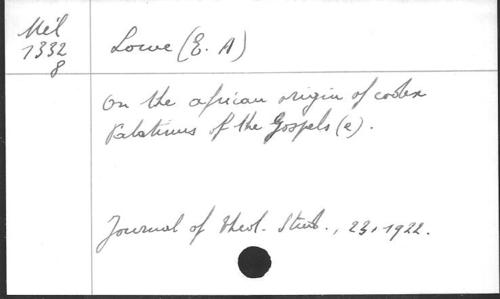 Mél
1332
8
Lowe (E. A)
On the african origin of codex
Palatinus of the Gospels (e).
Journal of Theol. Stud., 23, 1922.